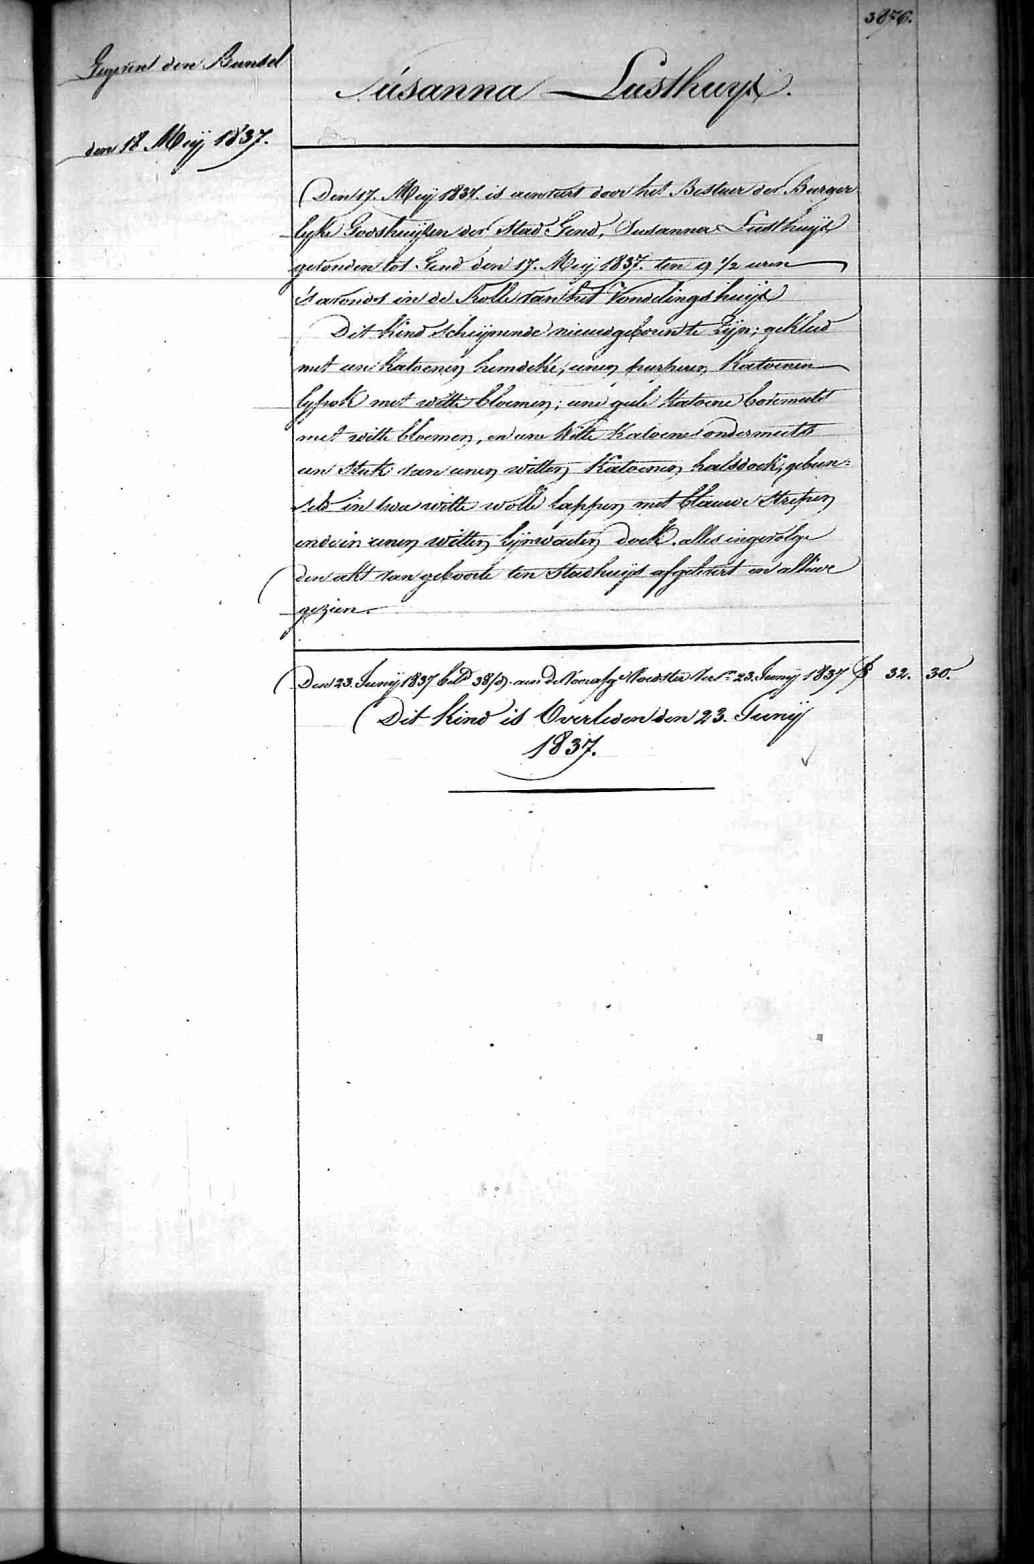 3876.
Gegeven den Bundel
den 18 Meij 1837.
Susanna Lusthuys.
Den 17. Meij 1837. is aenveert door het Bestuer der Burger
lyke Godshuijsen der Stad Gend, Susanna Lusthuijs
gevonden tot Gend den 17. Meij 1837. ten 9 1/2 uren
's avonds in de Rolle van het Vondelingshuijs
Dit kind schijnende nieuwgeboren te zijn; gekleed
met een katoenen hemdeke, eenen purperen katoenen
lyfrok met witte bloemen; eene gele katoene bovenmuts
met witte bloemen, en eene witte katoene ondermuts
een stuk van eenen witten katoenen halsdoek, gebun-
seld in twee witte wolle lappen met blauwe strepen
ende in eenen witten lijnwaeten doek, alles ingevolge
den akt van geboorte ten Stadhuijs afgelevert en alhier
gezien.
Den 23. Junij 1837 bet.d 38/d. aen de Voorafg. Voedster Vert. 23. Junij 1837 32. 30.
Dit kind is Overleden den 23. Junij
1837.